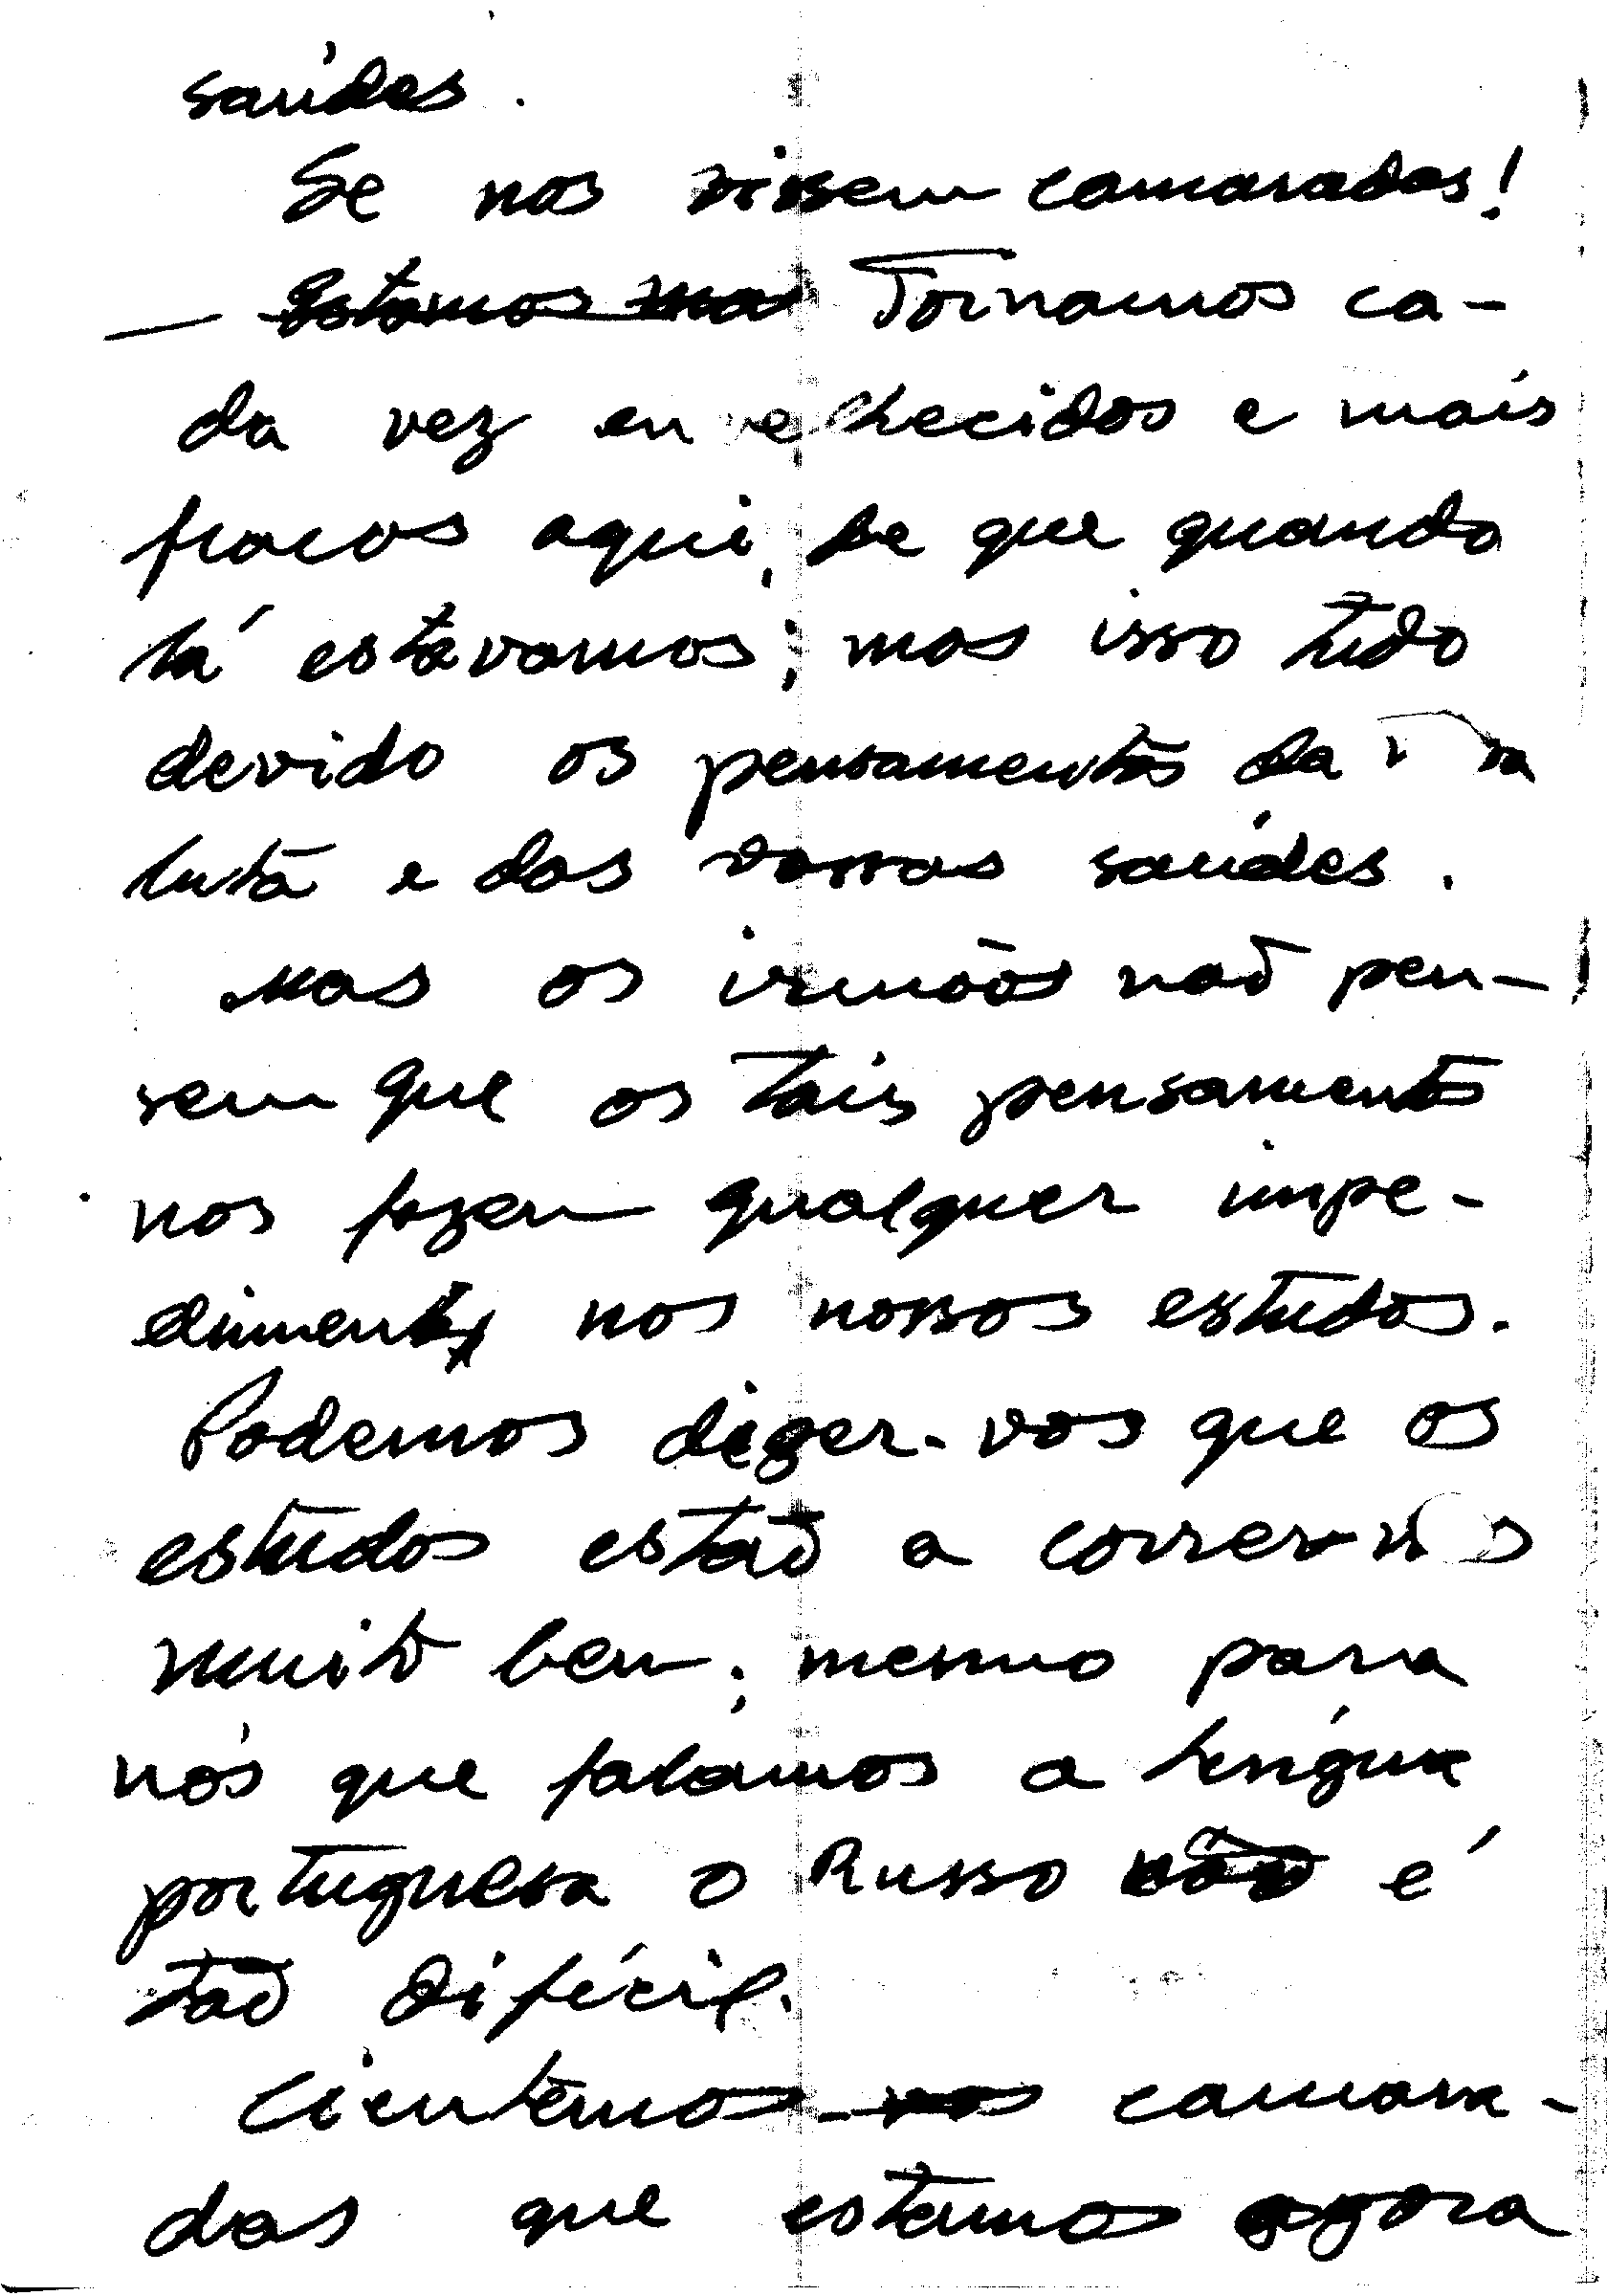 saúdes.
Se nos vissem camaradas!
— Estamos mais Tornamos ca-
da vez envelhecidos e mais
fracos aqui, se que quando
lá estavamos; mas isso tudo
devido os pensamentos da
luta e das vossas saúdes.
Mas os irmãos não pen-
sem que os tais pensamentos
nos fazem qualquer impe-
dimento nos nossos estudos.
Podemos dizer-vos que os
estudos estão a correr-nos
muito bem; mesmo para
nós que falamos a língua
portuguesa o Russo não é
tão difícil.
Cientemos-vos camara-
das que estamos agora